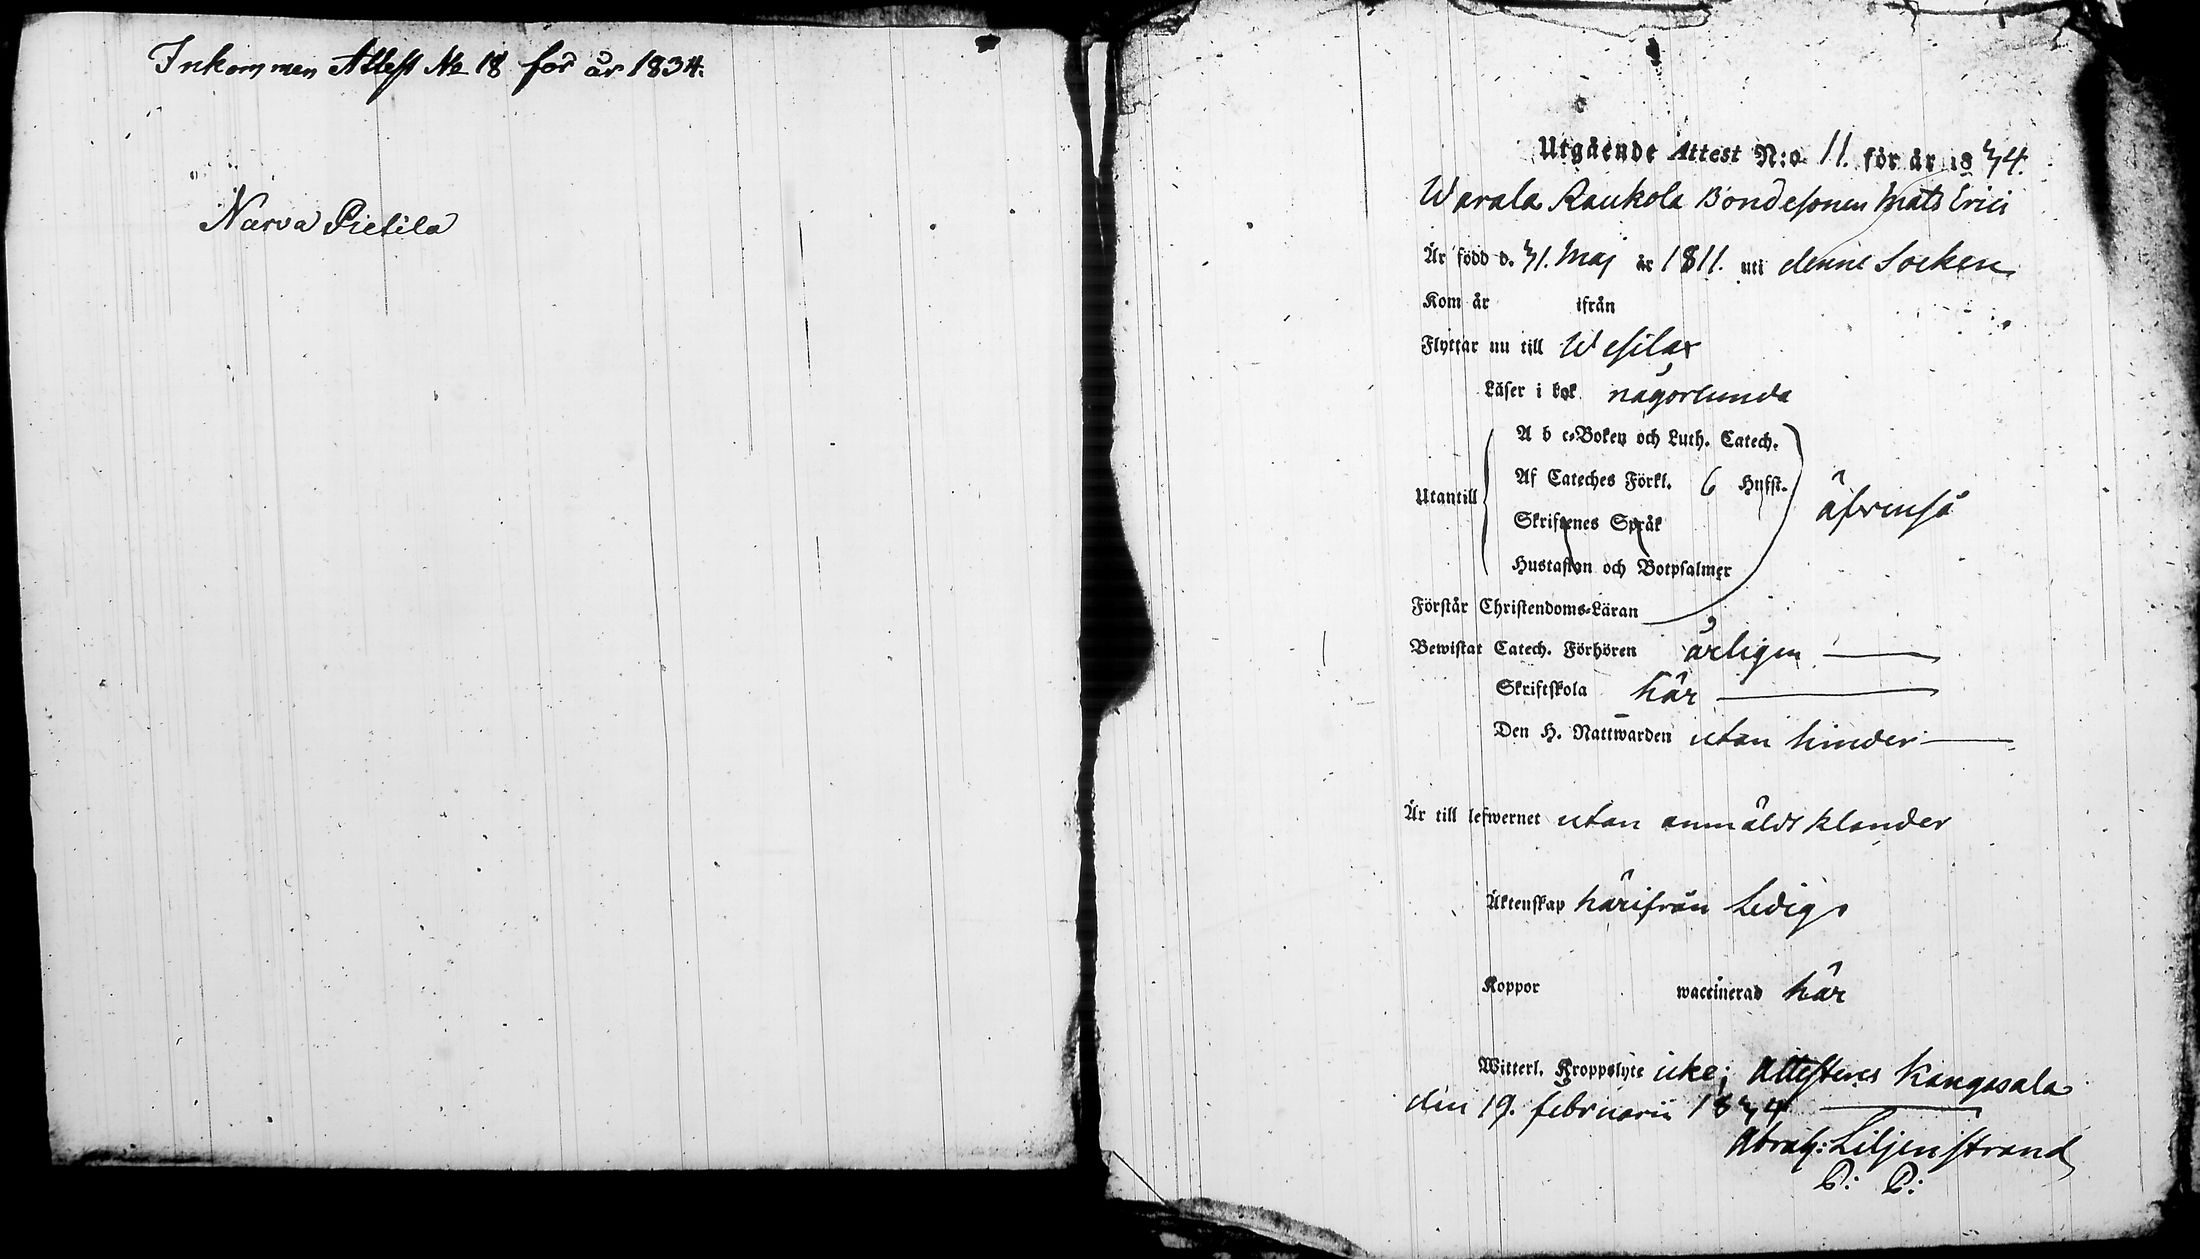 Inkommen Attest No 18 för år 1834.
Narva Pietilä
Utgående Attest N:o 11. för år 1834.
Warala Raukola Bondesonen Mats Erici
Är född d. 31. Maj år 1811. uti denne Socken
Kom år ifrån
Flyttar nu till Wesilax
Läser i bok någorlunda
A b c-Boken och Luth. Catech.
Af Cateches Förkl. 6 Hufst.
Utantill äfvenså
Skriftenes Språk
Hustaflan och Botpsalmer
Förstår Christendoms-Läran
Bewistat Catech. Förhören årligen
Skriftskola här
Den H. Nattwarden utan hinder
Är till lefwernet utan anmäldt klander
Äktenskap härifrån Ledig
Koppor waccinerad här
Witterl. Kroppslyte icke; Attesteres Kangasala
den 19. februarii 1834
Abrah: Liljenstrand
P: P: